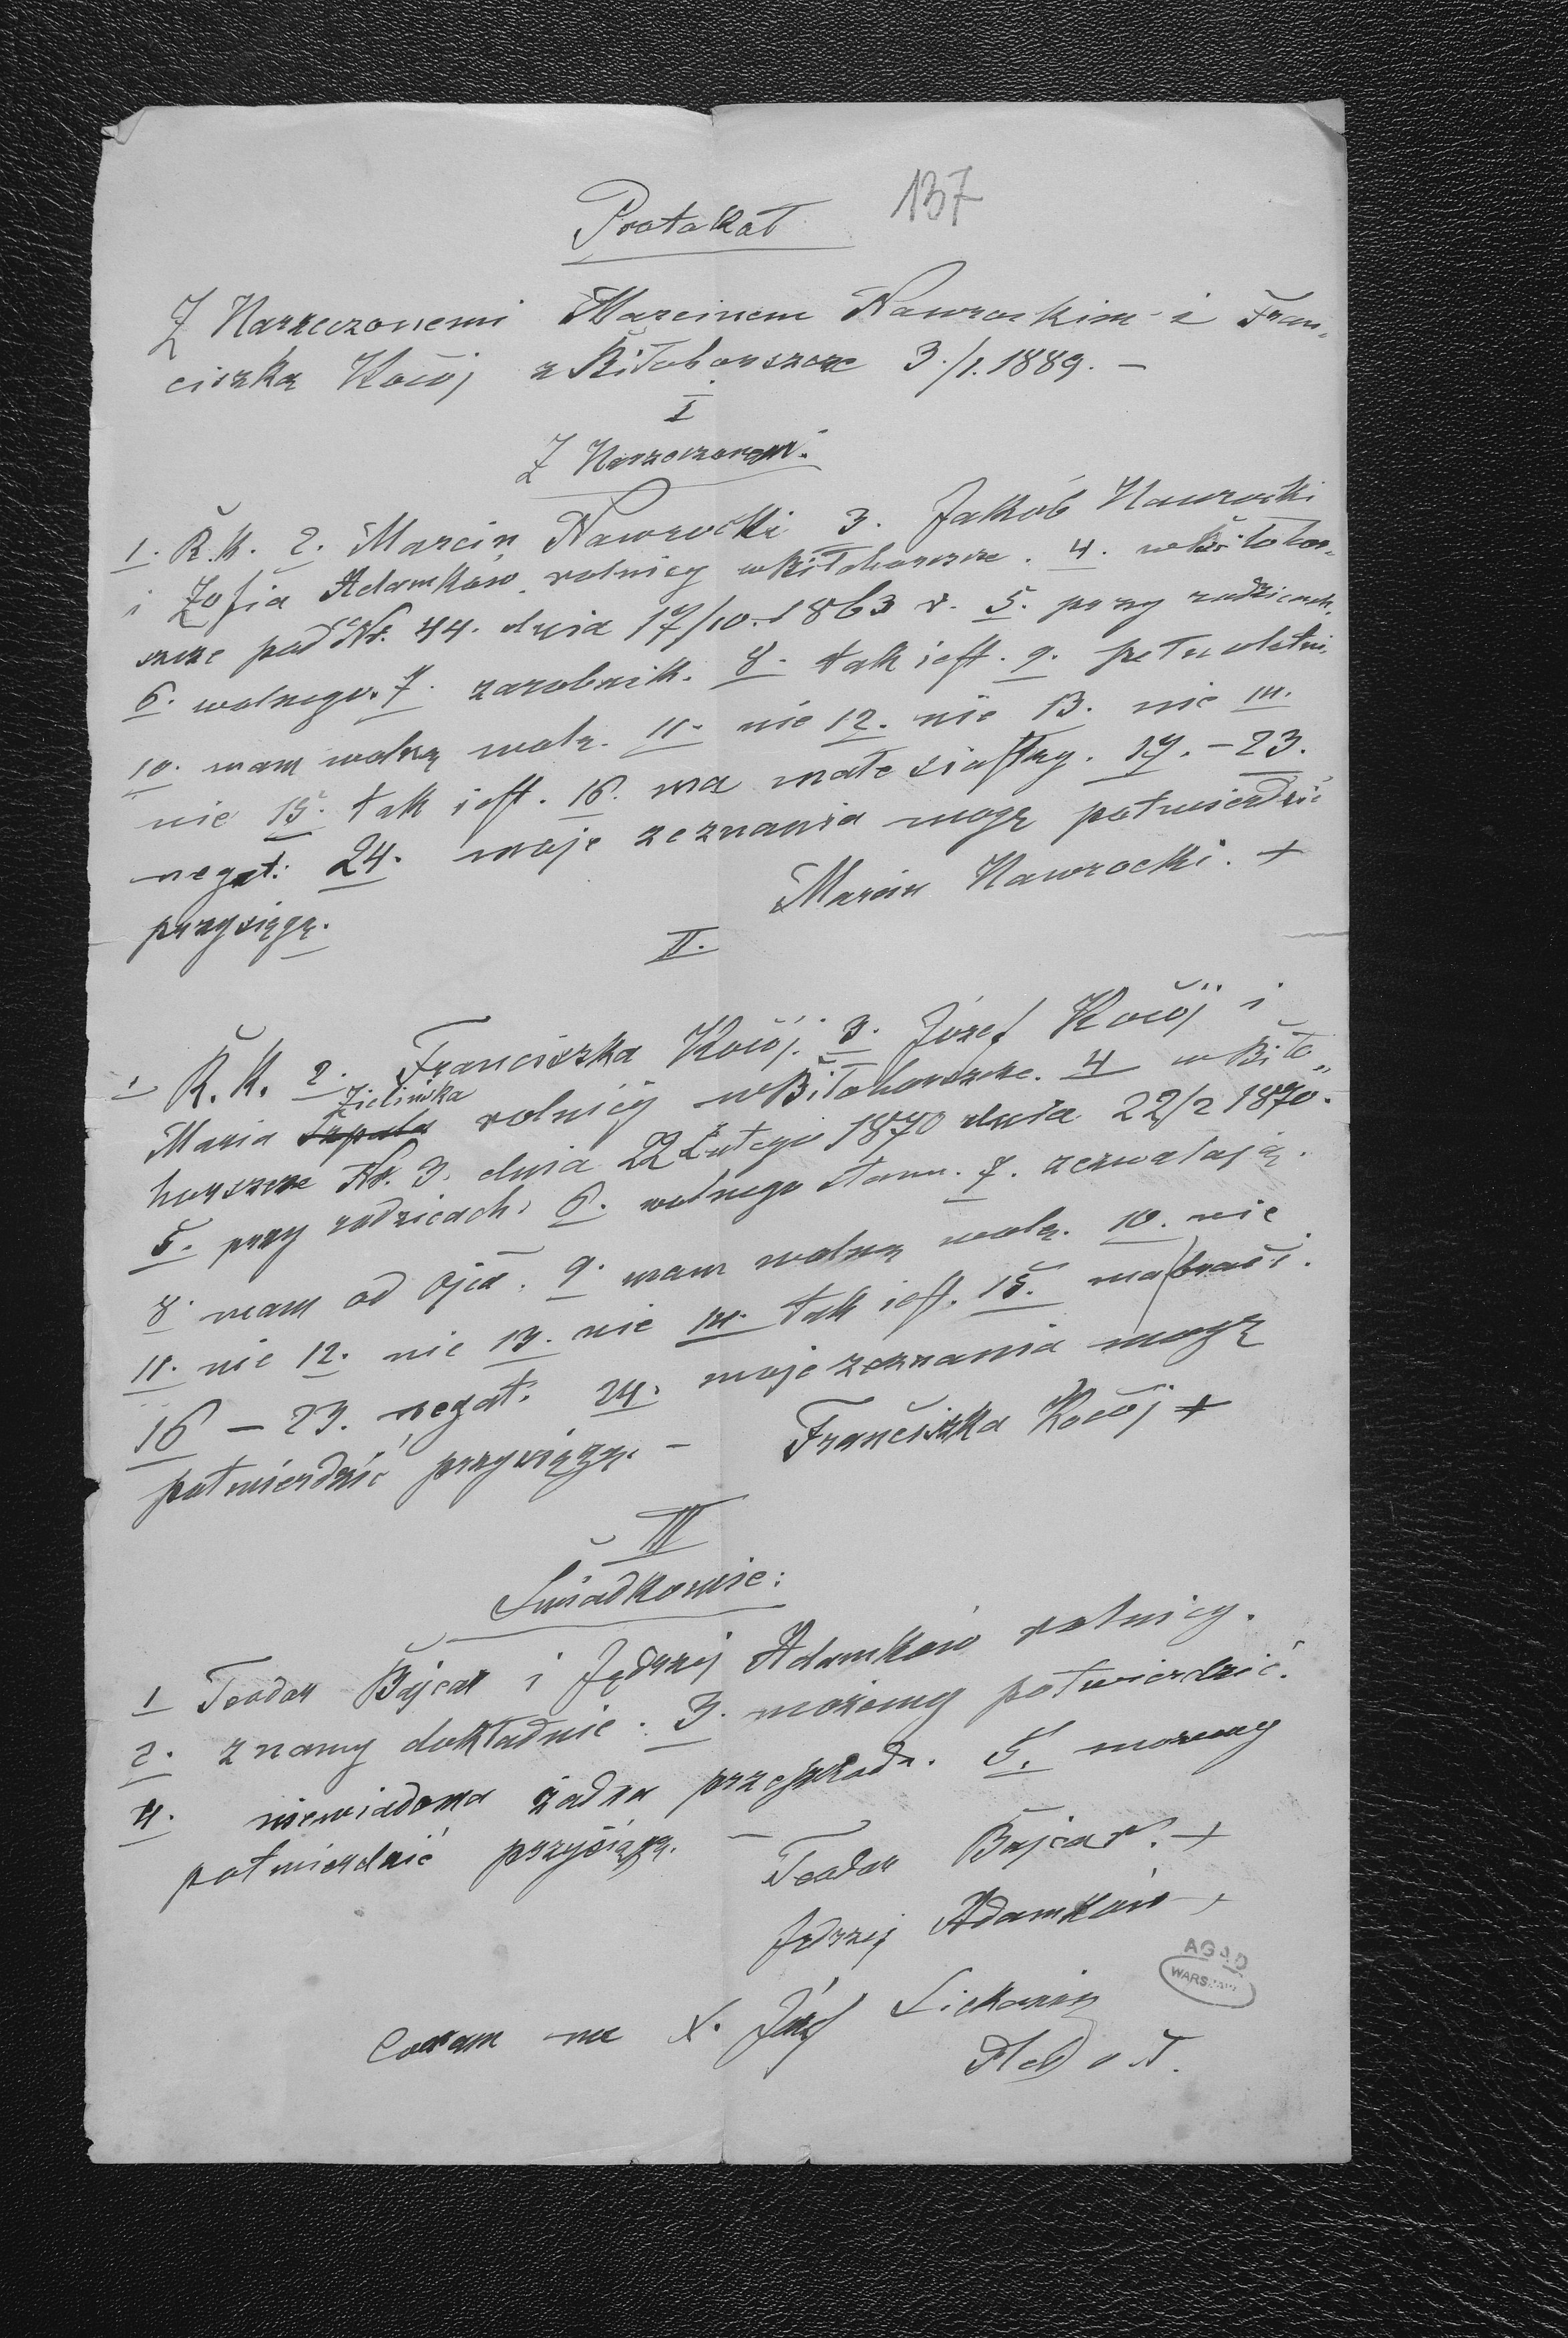 Protokół 137
Z Narzeczonemi Marcinem Nawrockim i Fran„
ciszką Kocój z Biłohorszcze 3./1. 1889. —
I
Z Narzeczonym.
1. R. K. 2. Marcin Nawrocki 3. Jakób Nawrocki
i Zofia Adamków rolnicy w Biłohorszcze. 4. w Biłohor„
szcze pod Nr. 44. dnia 17/10. 1863 r. 5. przy rodzicach.
6. wolnego. 7. zarobnik. 8. tak jest. 9. pełnoletni
10. mam wolną wolę. 11. nie 12. nie 13. nie 14.
nie 15. tak jest. 16. ma małe siostry. 17. – 23.
negat: 24. moje zeznania mogę potwierdzić
przysięgą. Marcin Nawrocki. +
II.
1 R. K. 2. Franciszka Kocój. 3. Józef Kocój i
Maria Zielińska rolnicy w Biłohorszcze. 4 w Biło„
horszcze Nr. 3. dnia 22 Lutego 1870 dnia 22/2 1870.
5. przy rodzicach. 6. wolnego stanu. 7. zezwalają.
8. mam od ojca. 9. mam wolną wolę. 10. nie
11. nie 12. nie 13. nie 14. tak jest. 15. ma braci.
16 – 23. negat. 24. moje zeznania mogę
potwierdzić przysięgą. — Franciszka Kocój +
III
Świadkowie:
1 Teodor Bajcar i Jędrzej Adamków rolnicy.
2. znamy dokładnie. 3. możemy potwierdzić.
4. niewiadoma żadna przeszkoda. 5. możemy
potwierdzić przysięgą. — Teodor Bajcar. +
Jędrzej Adamków +
AGAD
WARSZAWA
Coram me X. Józef